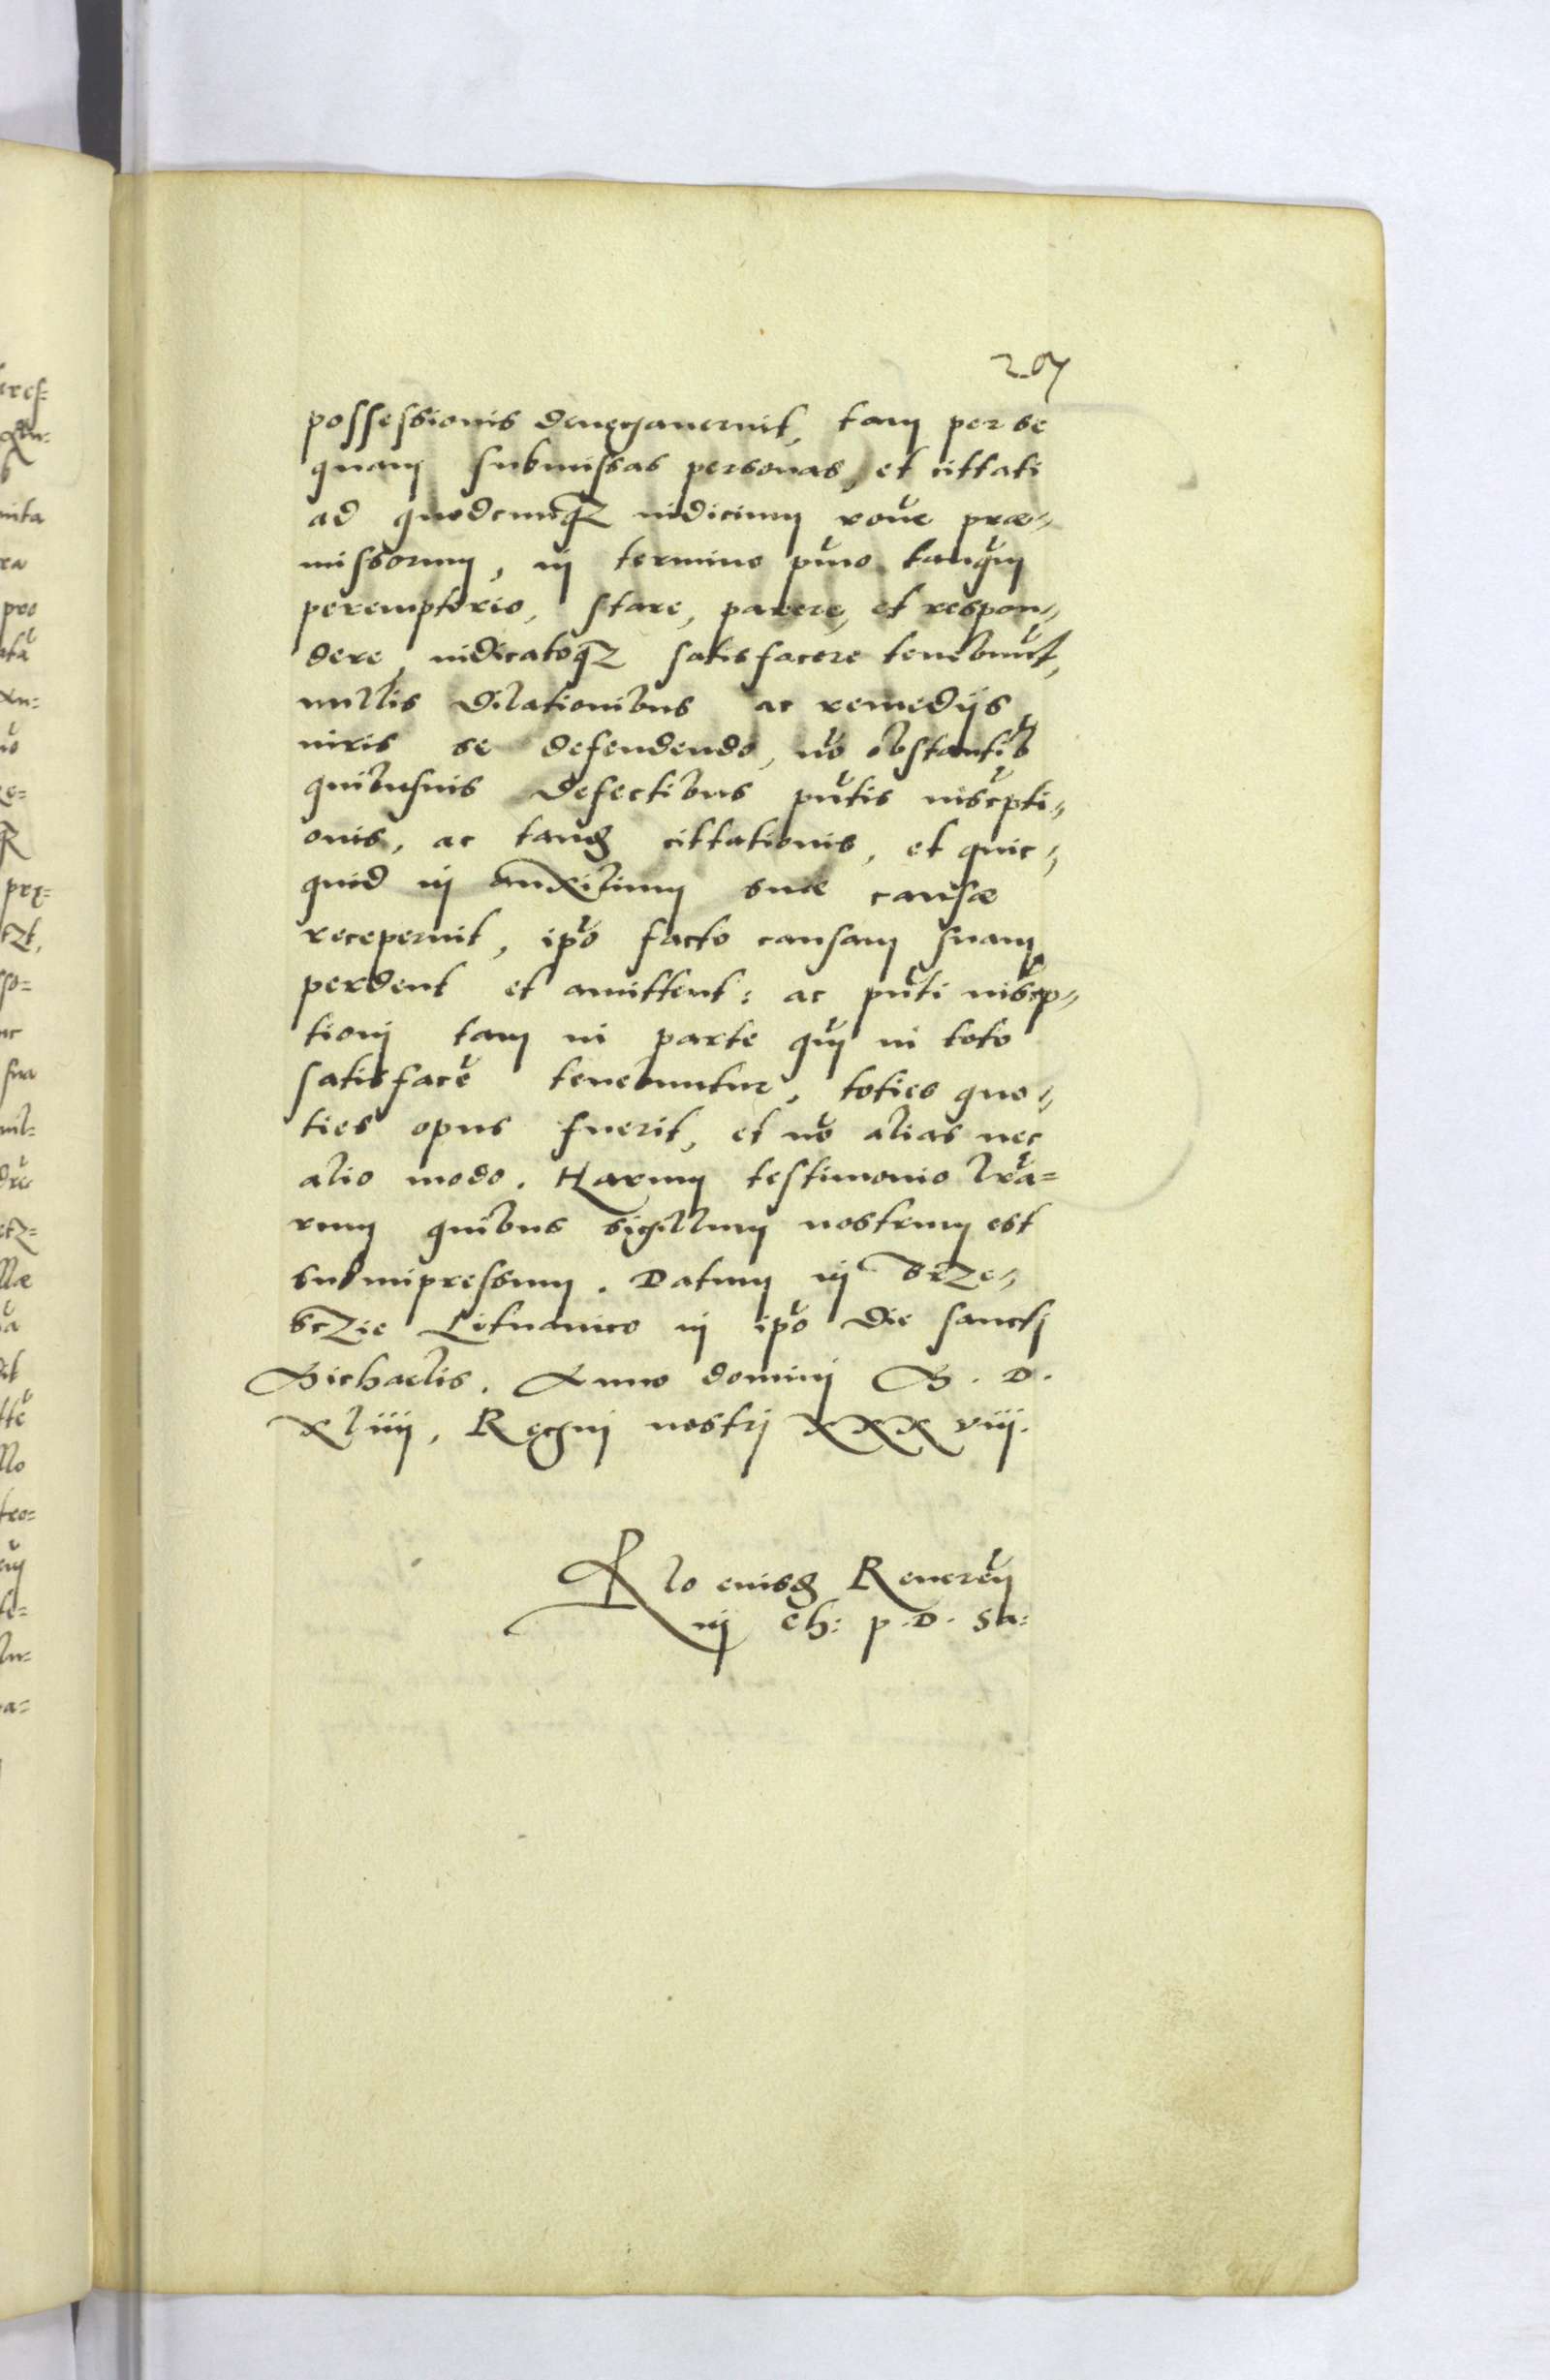 207
possessionis denegaverint, tam per se
quam submissas personas, et cittati
ad quodcunqz iudicium rõne præ=
missorum, in termino pñio tanq̃m
peremptorio, stare, parere, et respon=
dere, iudicatoqz satisfacere tenebunt̃,
nullis dilationibus ac remedijs
iuris se defendendo, nõ obstantib̃
quibusuis defectibus pñtis inscr̃pti=
onis, ac tanq̃ cittationis, et quic=
quid in auxilium suæ causæ
receperint, ipõ facto causam suam
perdent et amittent: ac pñti inscr̃p=
tioni tam in parte q̃m in toto
satisfacẽ tenebuntur, toties quo=
ties opus fuerit, et nõ alias nec
alio modo. Harum testimonio lrã=
rum quibus sigillum nostrum est
subimpressum. Datum in Brze=
sczie Lituanico in ipõ die sancti
Michaelis. Anno domini M. D.
XLiiij, Regni nostri XXXviij.
Rlo eiusd Reuerẽn
in Ch: p. D. Sa: